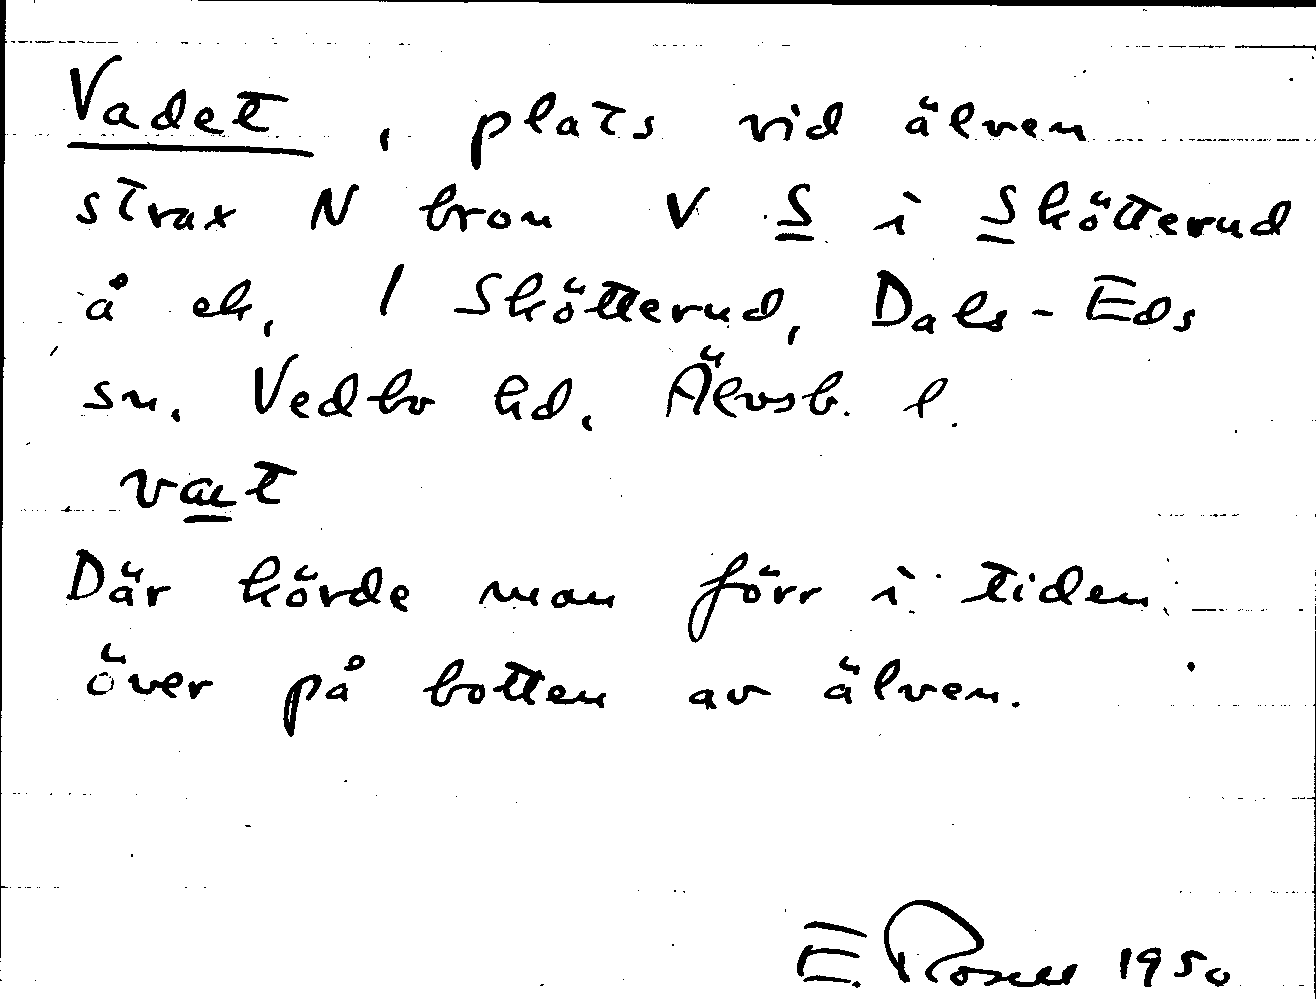 Vadet, plats vid älven
strax N bron V S i Skötterud
å ek, 1 Skötterud, Dals-Eds
sn. Vedbo hd. Älvsb. l.
vat
Där körde man förr i tiden
över på botten av älven.
E. Rosell 1950